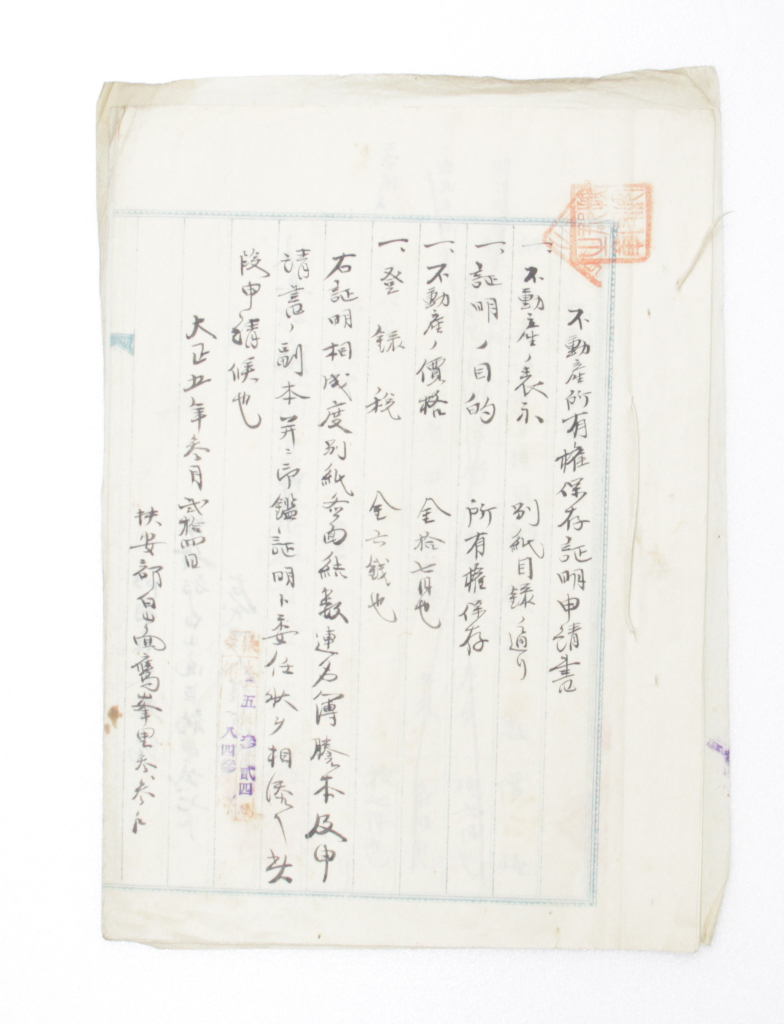 不動産所有權保存証明申請書
一、不動産ノ表示 別紙目録ノ通リ
一、証明ノ目的 所有權保存
一、不動産ノ價格 金拾七円也
一、登録税 金六銭也
右証明相成度別紙各面結数連名簿謄本及申
請書ノ副本並ニ印鑑証明ト委任状ヲ相添ヘ此
段申請候也
大正五年参月弐拾四日
扶安郡白山面鷹峯里参参
五 弐四
八四